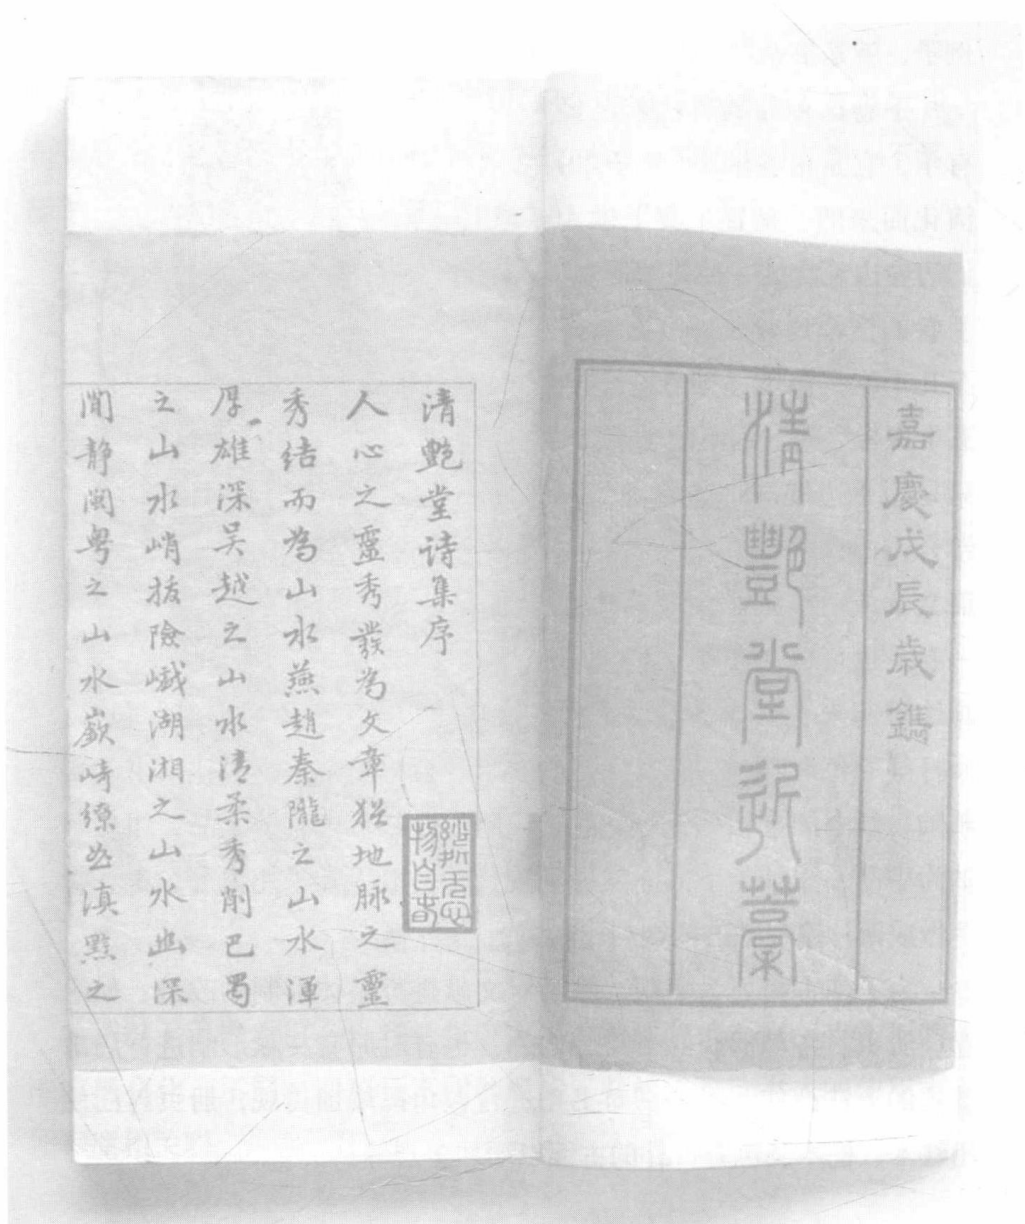 嘉慶戊辰歳鐫
清豔堂近藁
清艶堂诗集序
人心之靈秀發為文章猶地脉之靈
秀结而為山水燕趙秦隴之山水渾
厚雄深吴越之山水清柔秀削巴蜀
之山水峭拔險巇湖湘之山水幽深
閒静閩粤之山水嶔崎缭曲滇黔之